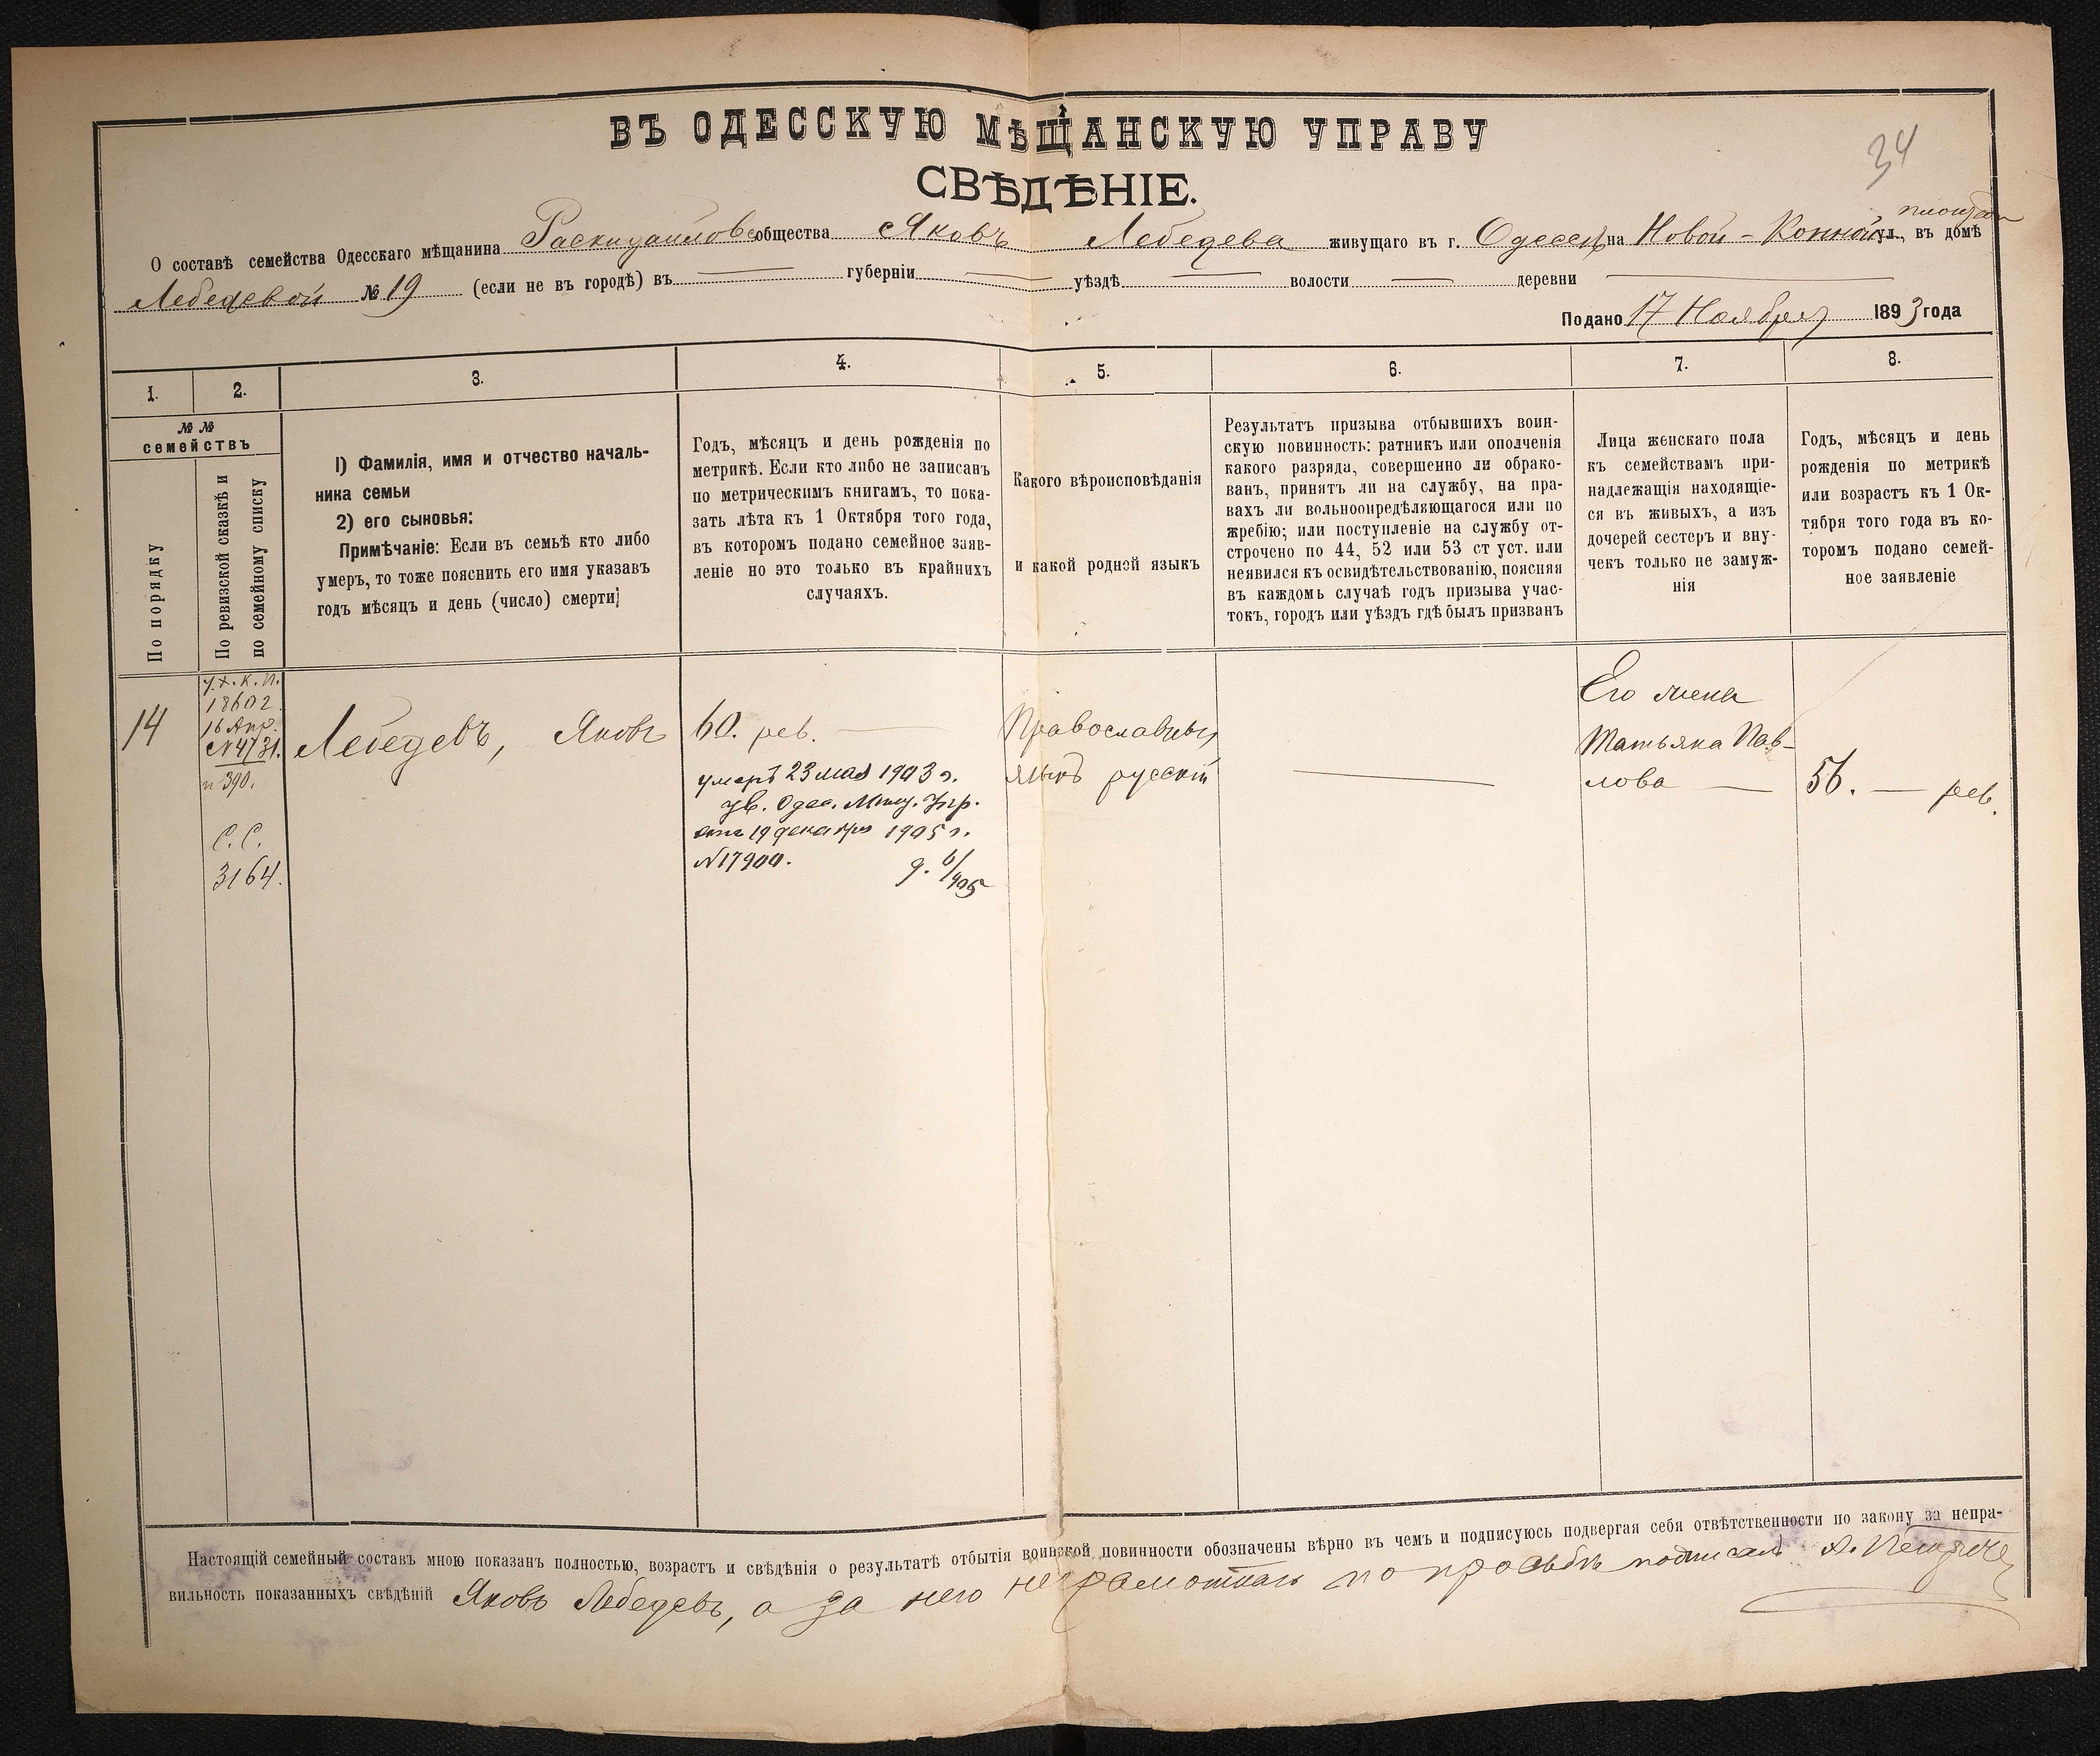 ВЪ ОДЕССКУЮ МѢЩАНСКУЮ УПРАВУ
34
СВѢДѢНІЕ.
площади
О составѣ семейства Одесскаго мѣщанина Раскидайловс общества Яковъ Лебедева живущаго въ г. Одессѣ на Новой-Конной ул., въ домѣ
Лебедевой № 19 (если не въ городѣ) въ — губерніи — уѣздѣ — волости — деревни —
Подано 17 Ноября 1893 года
1. 2. 3. 4. 5. 6. 7. 8.
№ №
семействъ
По порядку
По ревизской сказкѣ и
по семейному списку
1) Фамилія, имя и отчество началь-
ника семьи
2) его сыновья:
Примѣчаніе: Если въ семьѣ кто либо
умеръ, то тоже пояснить его имя указавъ
годъ мѣсяцъ и день (число) смерти;
Годъ, мѣсяцъ и день рожденія по
метрикѣ. Если кто либо не записанъ
по метрическимъ книгамъ, то пока-
зать лѣта къ 1 Октября того года,
въ которомъ подано семейное заяв-
леніе но это только въ крайнихъ
случаяхъ.
Какого вѣроисповѣданія
и какой родной языкъ
Результатъ призыва отбывшихъ воин-
скую повинность: ратникъ или ополченія
какого разряда, совершенно ли обрако-
ванъ, принятъ ли на службу, на пра-
вахъ ли вольноопредѣляющагося или по
жребію; или поступленіе на службу от-
строчено по 44, 52 или 53 ст уст. или
неявился къ освидѣтельствованію, поясняя
въ каждомъ случаѣ годъ призыва учас-
токъ, городъ или уѣздъ гдѣ былъ призванъ
Лица женскаго пола
къ семействамъ при-
надлежащія находящіе-
ся въ живыхъ, а изъ
дочерей сестеръ и вну-
чекъ только не замуж-
нія
Годъ, мѣсяцъ и день
рожденія по метрикѣ
или возрастъ къ 1 Ок-
тября того года въ ко-
торомъ подано семей-
ное заявленіе
14
18602
16 Апр.
№4731.
п 390.
С.С.
3164.
Лебедевъ, Яковъ
60. рев. —
умеръ 23 мая 1903 г.
ув. Одес. Мѣщ. Упр.
отъ 19 декабря 1905 г.
№17900.
Православный
языкъ русскій
—
Его жена
Татьяна Пав-
лова —
56. — рев.
Настоящій семейный составъ мною показанъ полностью, возрастъ и свѣдѣнія о результатѣ отбытія воинской повинности обозначены вѣрно въ чемъ и подписуюсь подвергая себя отвѣтственности по закону за непра-
вильность показанныхъ свѣдѣній Яковъ Лебедевъ, а за него неграмотнаго по просьбѣ подписалъ